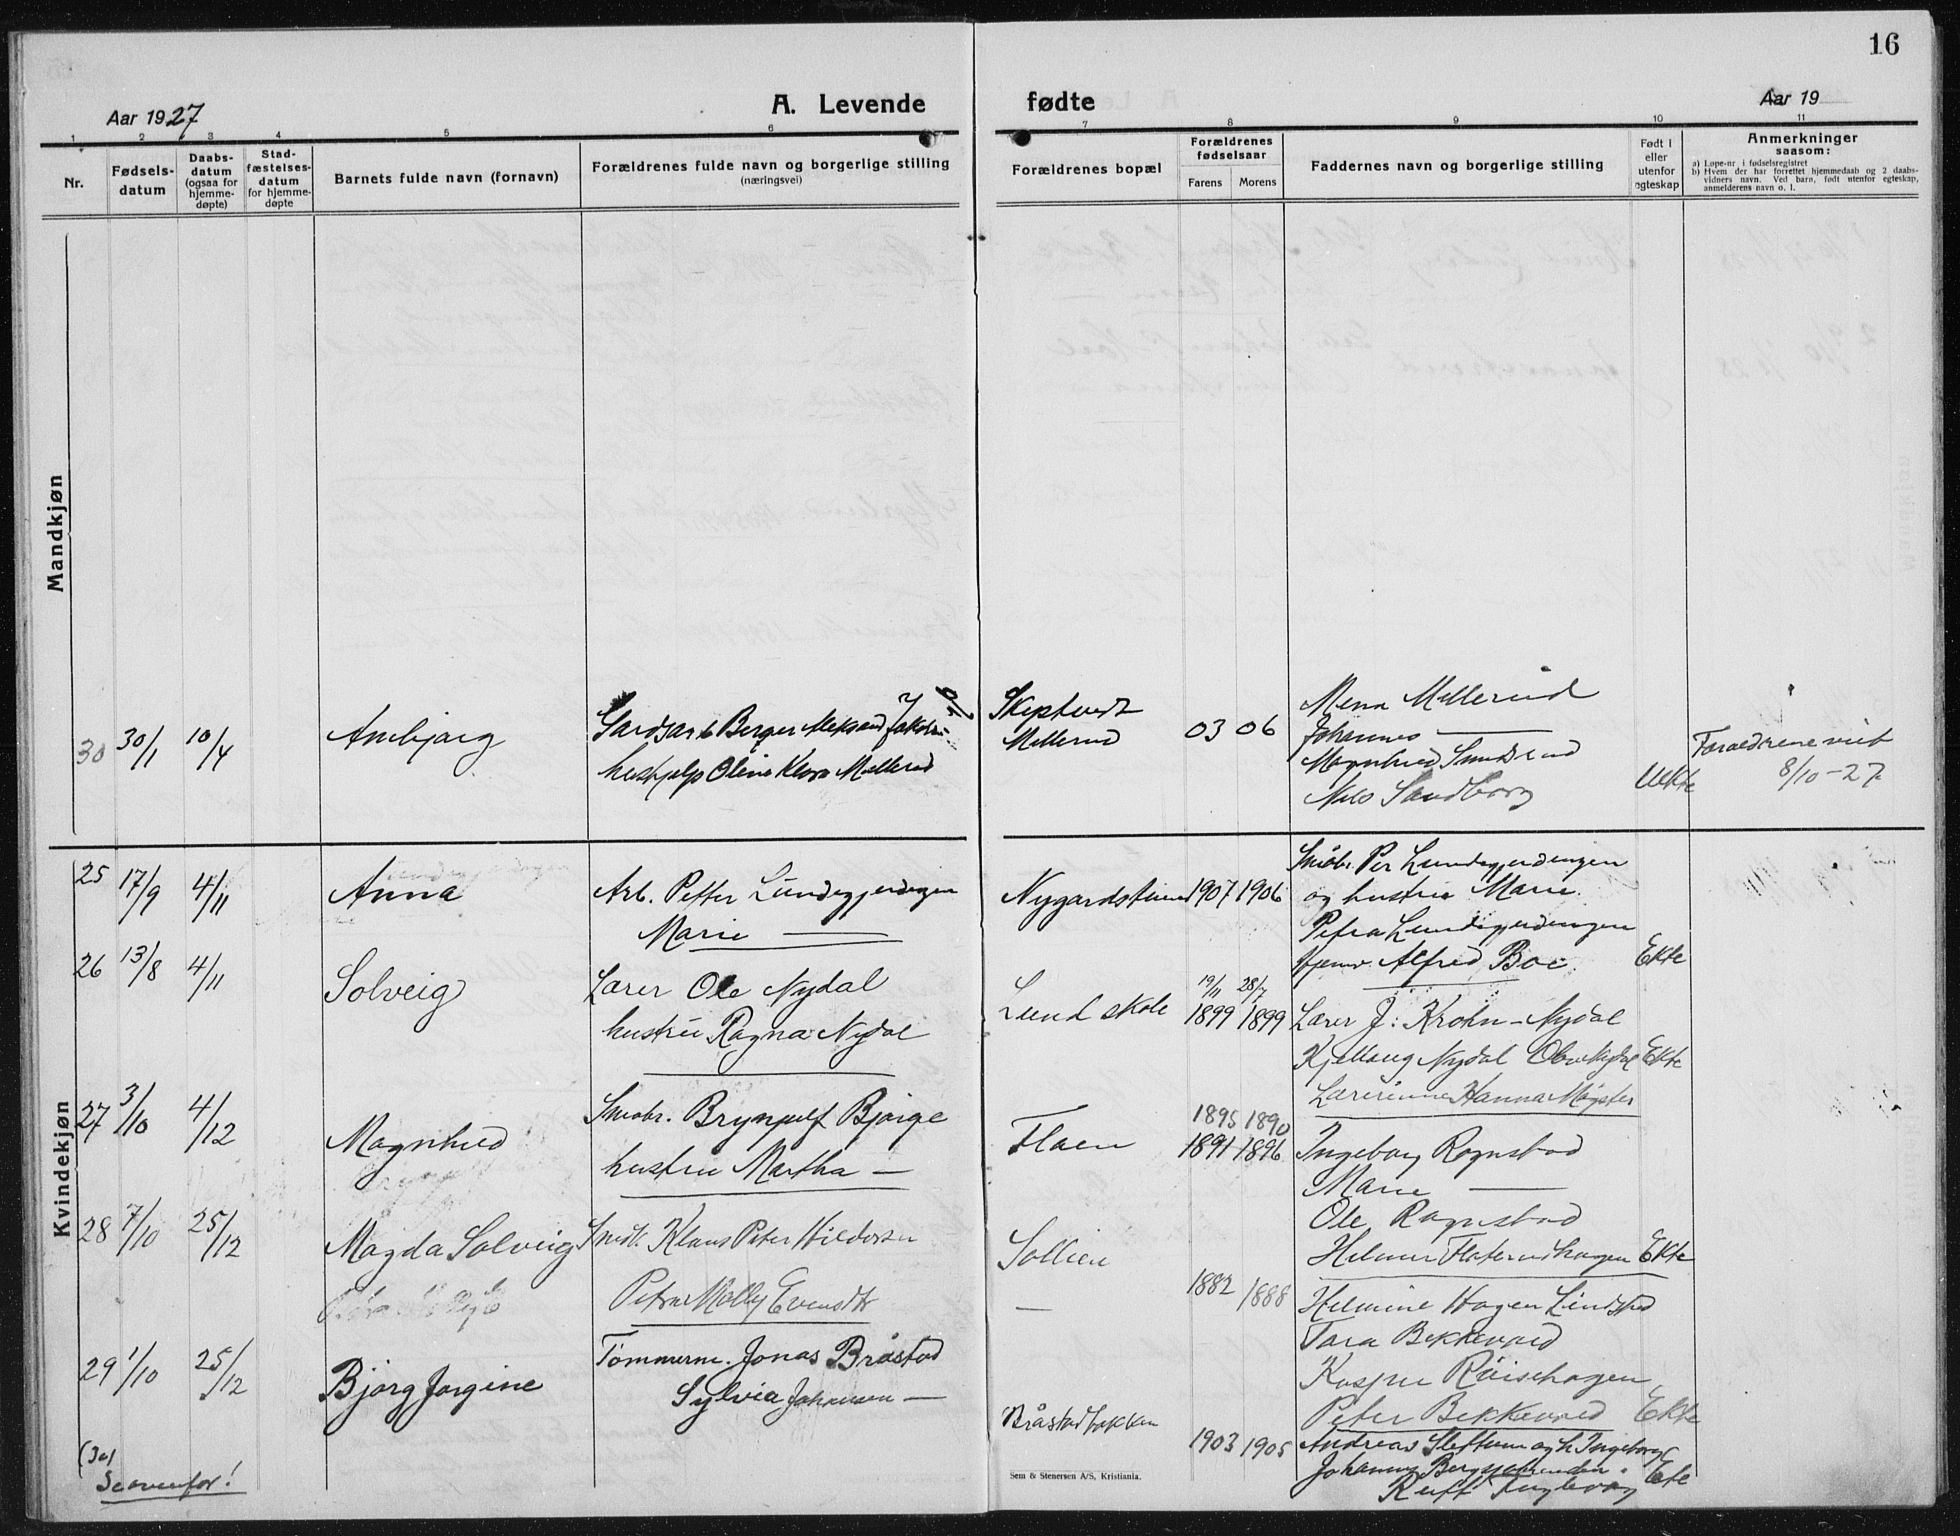 16
Aar 1927
A. Levende
fødte
Aar 19
1 2 3 4 5 6 7 8 9 10 11
Nr.
Fødsels-
datum
Daabs-
datum
(ogsaa for
hjemme-
døpte)
Stad-
fæstelses-
datum
for hjemme-
døpte
Barnets fulde navn (fornavn)
Forældrenes fulde navn og borgerlige stilling
(næringsvei)
Forældrenes bopæl
Forældrenes
fødselsaar
Farens Morens
Faddernes navn og borgerlige stilling
Født i
eller
utenfor
egteskap
Anmerkninger
saasom:
a) Løpe-nr. i fødselsregistret
b) Hvem der har forrettet hjemmedaab og 2 daabs-
vidners navn. Ved barn, født utenfor egteskap,
anmelderens navn o. l.
Mandkjøn
30 30/1 10/4
Gardsarb Berger Aleksand
hushjelp Oline Klara Mellerud
Skiptvedt
Mellerud
03 06
Mena Mellerud
Johannes —
Magnhild
Nils Sandborg
Uekte
Foreldrene viet
8/10-27
Kvindekjøn
25 17/9 4/11
Anna
Arb. Petter Lundegjerdingen
Marie —
1907 1906
Småbr. Per Lundegjerdingen
og hustru Marie.
Petra Lundegjerdingen
Alfred Boe
Ekte
26 13/8 4/11
Solveig
Lærer Ole Nydal
hustru Ragna Nydal
Lund skole
19/11 28/7
1899 1899
Lærer J. Krohn-Nydal
Kjellaug Nydal
Ekte
Lærerinne Hanna
27 3/10 4/12
Magnhild
Småbr. Brynjulf Bjørge
hustru Martha —
Flaen
1895 1890
1891 1896
Ingeborg Rognstad
Marie —
Ole Rognstad
Helmer
Ekte
28 7/10 25/12
Magda Solveig
Klaus Peter
Petra Molly
Sollien
—
1882 1888
Helmine Hagen Lindstad
Tara Bekkevold
Kaspar
Peter Bekkevold
Ekte
29 1/10 25/12
Bjørg Jorgine
Tømmerm. Jonas Bråstad
Sylvia Johansen —
Bråstadbakken
1903 1905
Andreas Slettum og h. Ingeborg
Johannes
Ekte
(30)
Se ovenfor!
Sem & Stenersen A/S, Kristiania.